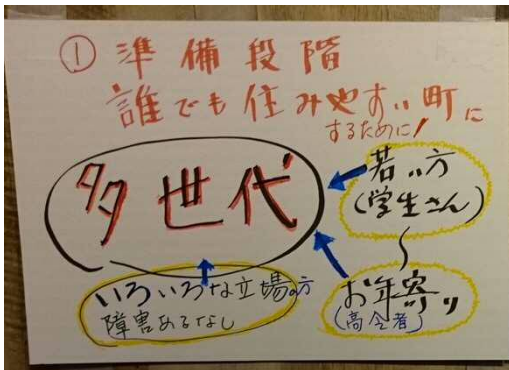 ① 準備段階
誰でも住みやすい町に
するために!
多世代
若い方
(学生さん)
〜
お年寄り
(高令者)
いろいろな立場の方
障害あるなし